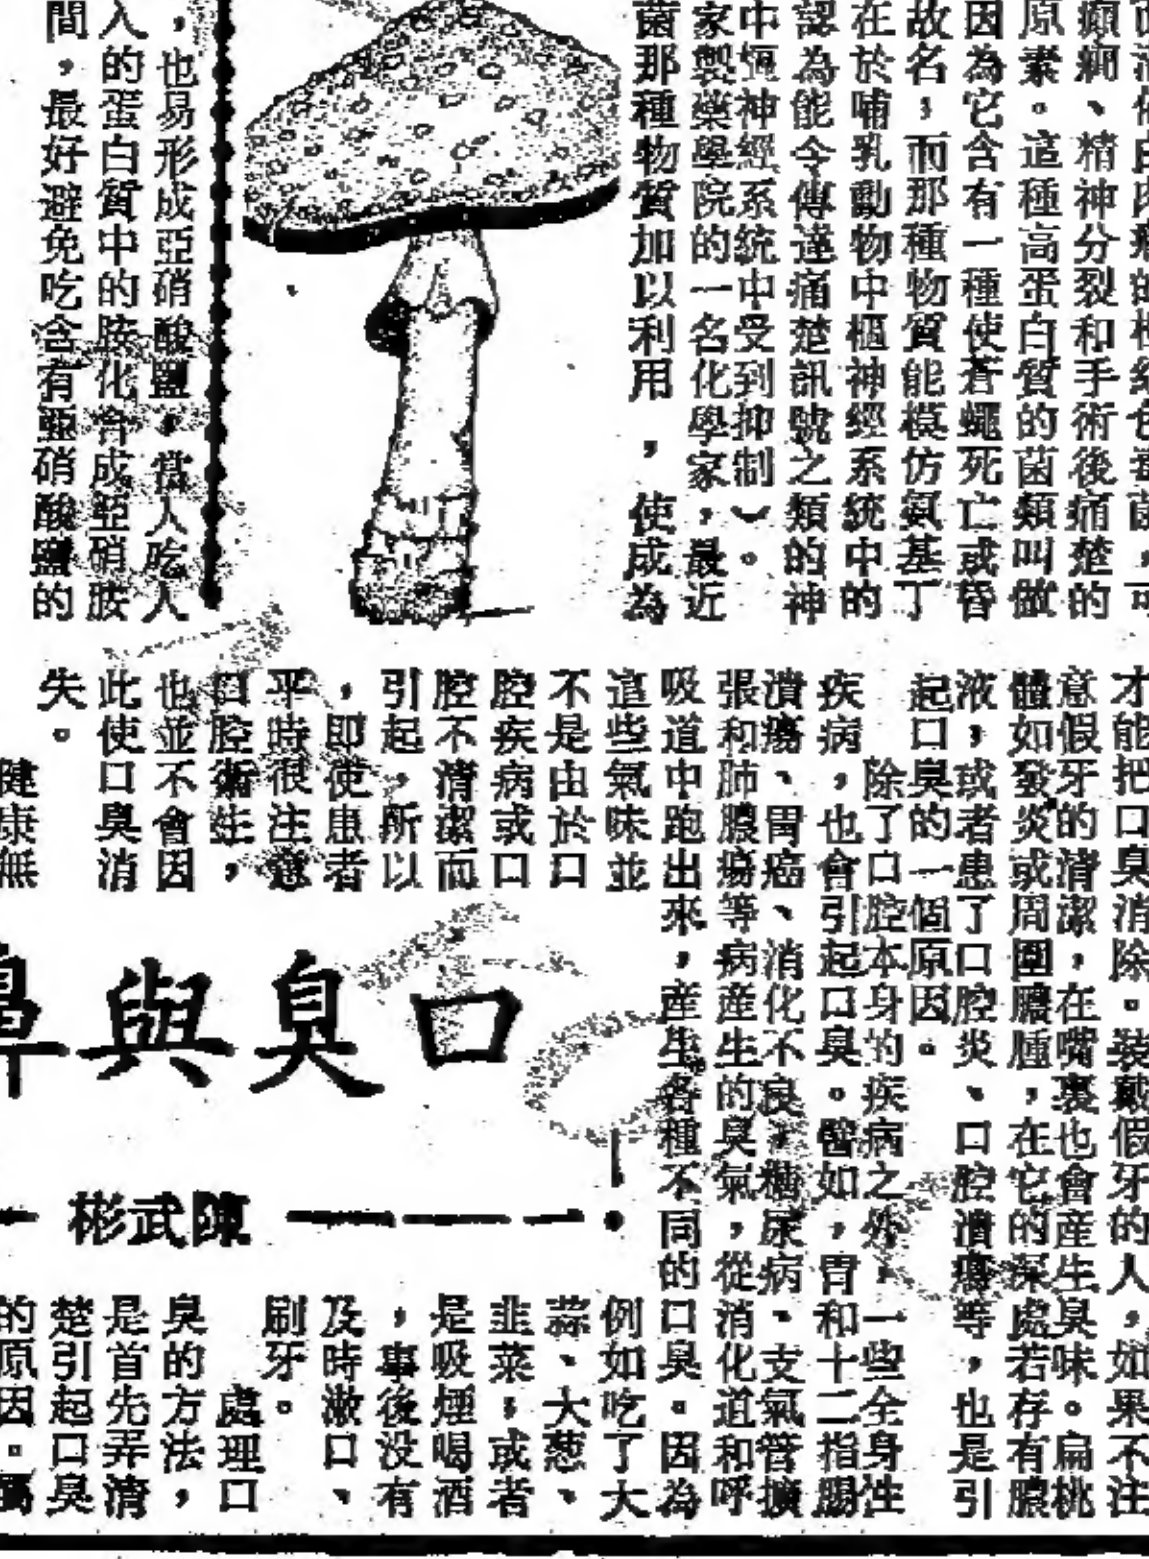 癲癇、精神分裂和手術後痛楚的
原素。這種高蛋白質的菌類叫做
因為它含有一種使蒼蠅死亡或昏
故名，而那種物質能模仿氨基丁
在於哺乳動物中樞神經系統中的
認為能令傳達痛楚訊號之類的神
中樞神經系統中受到抑制）。
家製藥學院的一名化學家，最近
菌那種物質加以利用，使成為
，也易形成亞硝酸鹽，當人吃人
入的蛋白質中的胺化合成亞硝胺
間，最好避免吃含有亞硝酸鹽的
才能把口臭消除。裝戴假牙的人，如果不注
意假牙的清潔，在嘴裏也會產生臭味。扁桃
體如發炎或周圍膿腫，在它的深處若存有膿
液，或者患了口腔炎、口腔潰瘍等，也是引
起口臭的一個原因。
除了口腔本身的疾病之外，一些全身性
疾病，也會引起口臭。譬如，胃和十二指腸
潰瘍、胃癌、消化不良，糖尿病、支氣管擴
張和肺膿瘍等病產生的臭氣，從消化道和呼
吸道中跑出來，產生各種不同的口臭。因為
這些氣味並
不是由於口
腔疾病或口
腔不清潔而
引起，所以
，即使患者
平時很注意
口腔衛生，
也並不會因
此使口臭消
失。
健康無
口臭與鼻
陳武彬
例如吃了大
蒜、大葱、
韭菜，或者
是吸煙喝酒
，事後没有
及時漱口、
刷牙。
處理口
臭的方法，
是首先弄清
楚引起口臭
的原因。